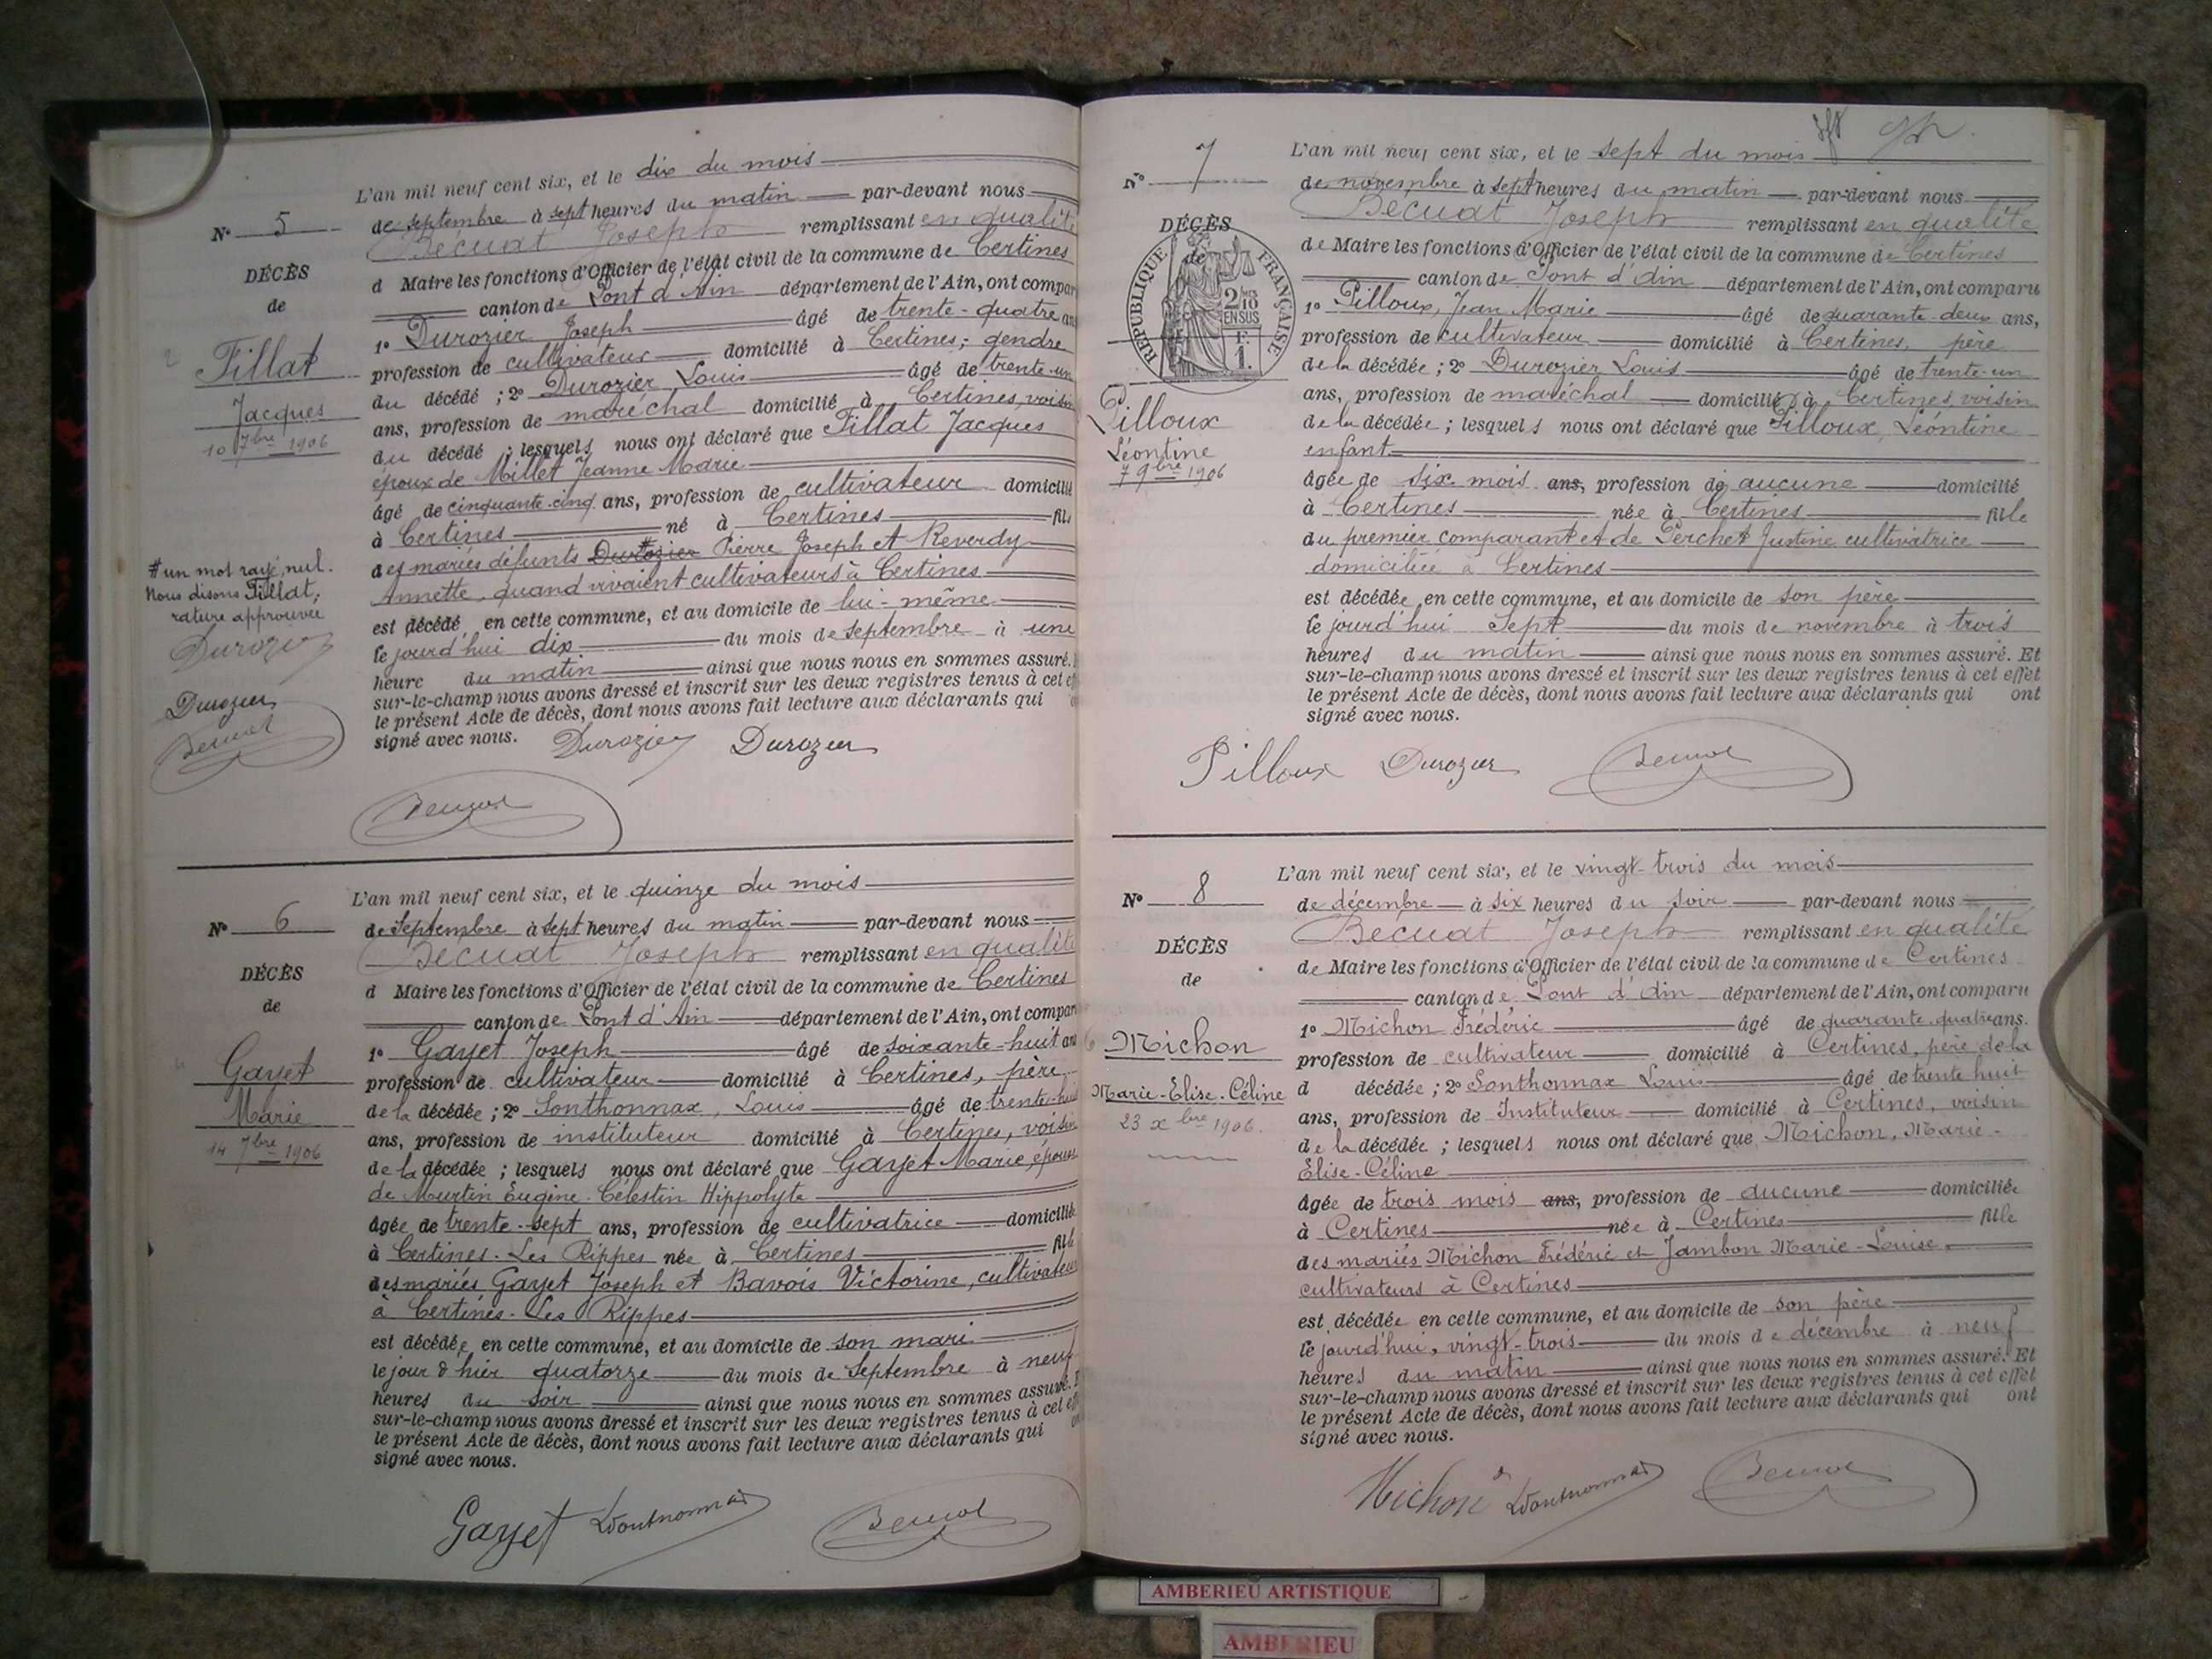 L'an mil neuf cent six, et le dix du mois
de septembre à sept heures du matin par-devant nous
Nº 5
Bécuat Joseph remplissant en qualité
DÉCÈS
de
d Maire les fonctions d'Officier de l'état civil de la commune de Certines
canton de Pont d'Ain département de l'Ain, ont compar
1º Durozier Joseph âgé de trente-quatre an
Tillat
Jacques
10 7bre 1906
profession de cultivateur domicilié à Certines, gendre
du décédé ; 2º Durozier Louis âgé de trente-un
ans, profession de maréchal domicilié à Certines, voisin
du décédé ; lesquels nous ont déclaré que Tillat Jacques
époux de Millet Jeanne Marie
âgé de cinquante-cinq ans, profession de cultivateur domicilié
à Certines né à Certines fils
des mariés défunts Durozier Pierre Joseph et Reverdy
Annette, quand vivaient cultivateurs à Certines
# un mot rayé, nul.
Nous disons Tillat,
rature approuvée
Durozier
Durozier
Becuat
est décédé en cette commune, et au domicile de lui-même
le jourd'hui dix du mois de septembre à une
heure du matin ainsi que nous nous en sommes assuré.
sur-le-champ nous avons dressé et inscrit sur les deux registres tenus à cet ef
le présent Acte de décès, dont nous avons fait lecture aux déclarants qui
signé avec nous. Durozier Durozier
Becuat
L'an mil neuf cent six, et le quinze du mois
de septembre à sept heures du matin par-devant nous
Nº 6
Bécuat Joseph remplissant en qualité
DÉCÈS
de
d Maire les fonctions d'Officier de l'état civil de la commune de Certines
canton de Pont d'Ain département de l'Ain, ont compar
1º Gayet Joseph âgé de soixante-huit an
Gayet
Marie
14 7bre 1906
profession de cultivateur domicilié à Certines, père
de la décédée ; 2º Sonthonnax, Louis âgé de trente-huit
ans, profession de instituteur domicilié à Certines, voisin
de la décédée ; lesquels nous ont déclaré que Gayet Marie, épouse
de Murtin Eugène-Célestin Hippolyte
âgée de trente-sept ans, profession de cultivatrice domiciliée
à Certines-Les Rippes née à Certines fille
des mariés Gayet Joseph et Bavois Victorine, cultivateurs
à Certines-Les Rippes
est décédée, en cette commune, et au domicile de son mari
le jour d'hier quatorze du mois de septembre à neuf
heures du soir ainsi que nous nous en sommes assuré.
sur-le-champ nous avons dressé et inscrit sur les deux registres tenus à cet ef
le présent Acte de décès, dont nous avons fait lecture aux déclarants qui
signé avec nous.
Gayet LSonthonnax Becuat
L'an mil neuf cent six, et le sept du mois
Nº 7
de novembre à sept heures du matin par-devant nous
Bécuat Joseph remplissant en qualité
DÉCÈS
de
RÉPUBLIQUE FRANÇAISE
2/10 EN SUS
F.
1.
de Maire les fonctions d'Officier de l'état civil de la commune de Certines
canton de Pont d'Ain département de l'Ain, ont comparu
1º Pilloux, Jean Marie âgé de quarante-deux ans,
profession de cultivateur domicilié à Certines, père
de la décédée ; 2º Durozier Louis âgé de trente-un
ans, profession de maréchal domicilié à Certines, voisin
de la décédée ; lesquels nous ont déclaré que Pilloux, Léontine
enfant
Pilloux
Léontine
7 9bre 1906
âgée de six mois ans, profession de aucune domicilié
à Certines née à Certines fille
du premier comparant et de Perchet Justine cultivatrice
domiciliée à Certines
est décédée en cette commune, et au domicile de son père
le jourd'hui sept du mois de novembre à trois
heures du matin ainsi que nous nous en sommes assuré. Et
sur-le-champ nous avons dressé et inscrit sur les deux registres tenus à cet effet
le présent Acte de décès, dont nous avons fait lecture aux déclarants qui ont
signé avec nous.
Pilloux Durozier Becuat
L'an mil neuf cent six, et le vingt-trois du mois
Nº 8
de décembre à six heures du soir par-devant nous
Bécuat Joseph remplissant en qualité
DÉCÈS
de
de Maire les fonctions d'Officier de l'état civil de la commune de Certines
canton de Pont d'Ain département de l'Ain, ont comparu
1º Michon Frédéric âgé de quarante-quatre ans.
Michon
Marie-Elise-Céline
23 xbre 1906.
profession de cultivateur domicilié à Certines, père de la
d décédée ; 2º Sonthonnax Louis âgé de trente huit
ans, profession de Instituteur domicilié à Certines, voisin
de la décédée ; lesquels nous ont déclaré que Michon, Marie-
Elise-Céline
âgée de trois mois ans, profession de aucune domiciliée
à Certines née à Certines fille
des mariés Michon Frédéric et Jambon Marie-Louise,
cultivateurs à Certines
est décédée en cette commune, et au domicile de son père
le jourd'hui, vingt-trois du mois de décembre à neuf
heures du matin ainsi que nous nous en sommes assuré. Et
sur-le-champ nous avons dressé et inscrit sur les deux registres tenus à cet effet
le présent Acte de décès, dont nous avons fait lecture aux déclarants qui ont
signé avec nous.
Michon LSonthonnax Becuat
AMBERIEU ARTISTIQUE
AMBERIEU